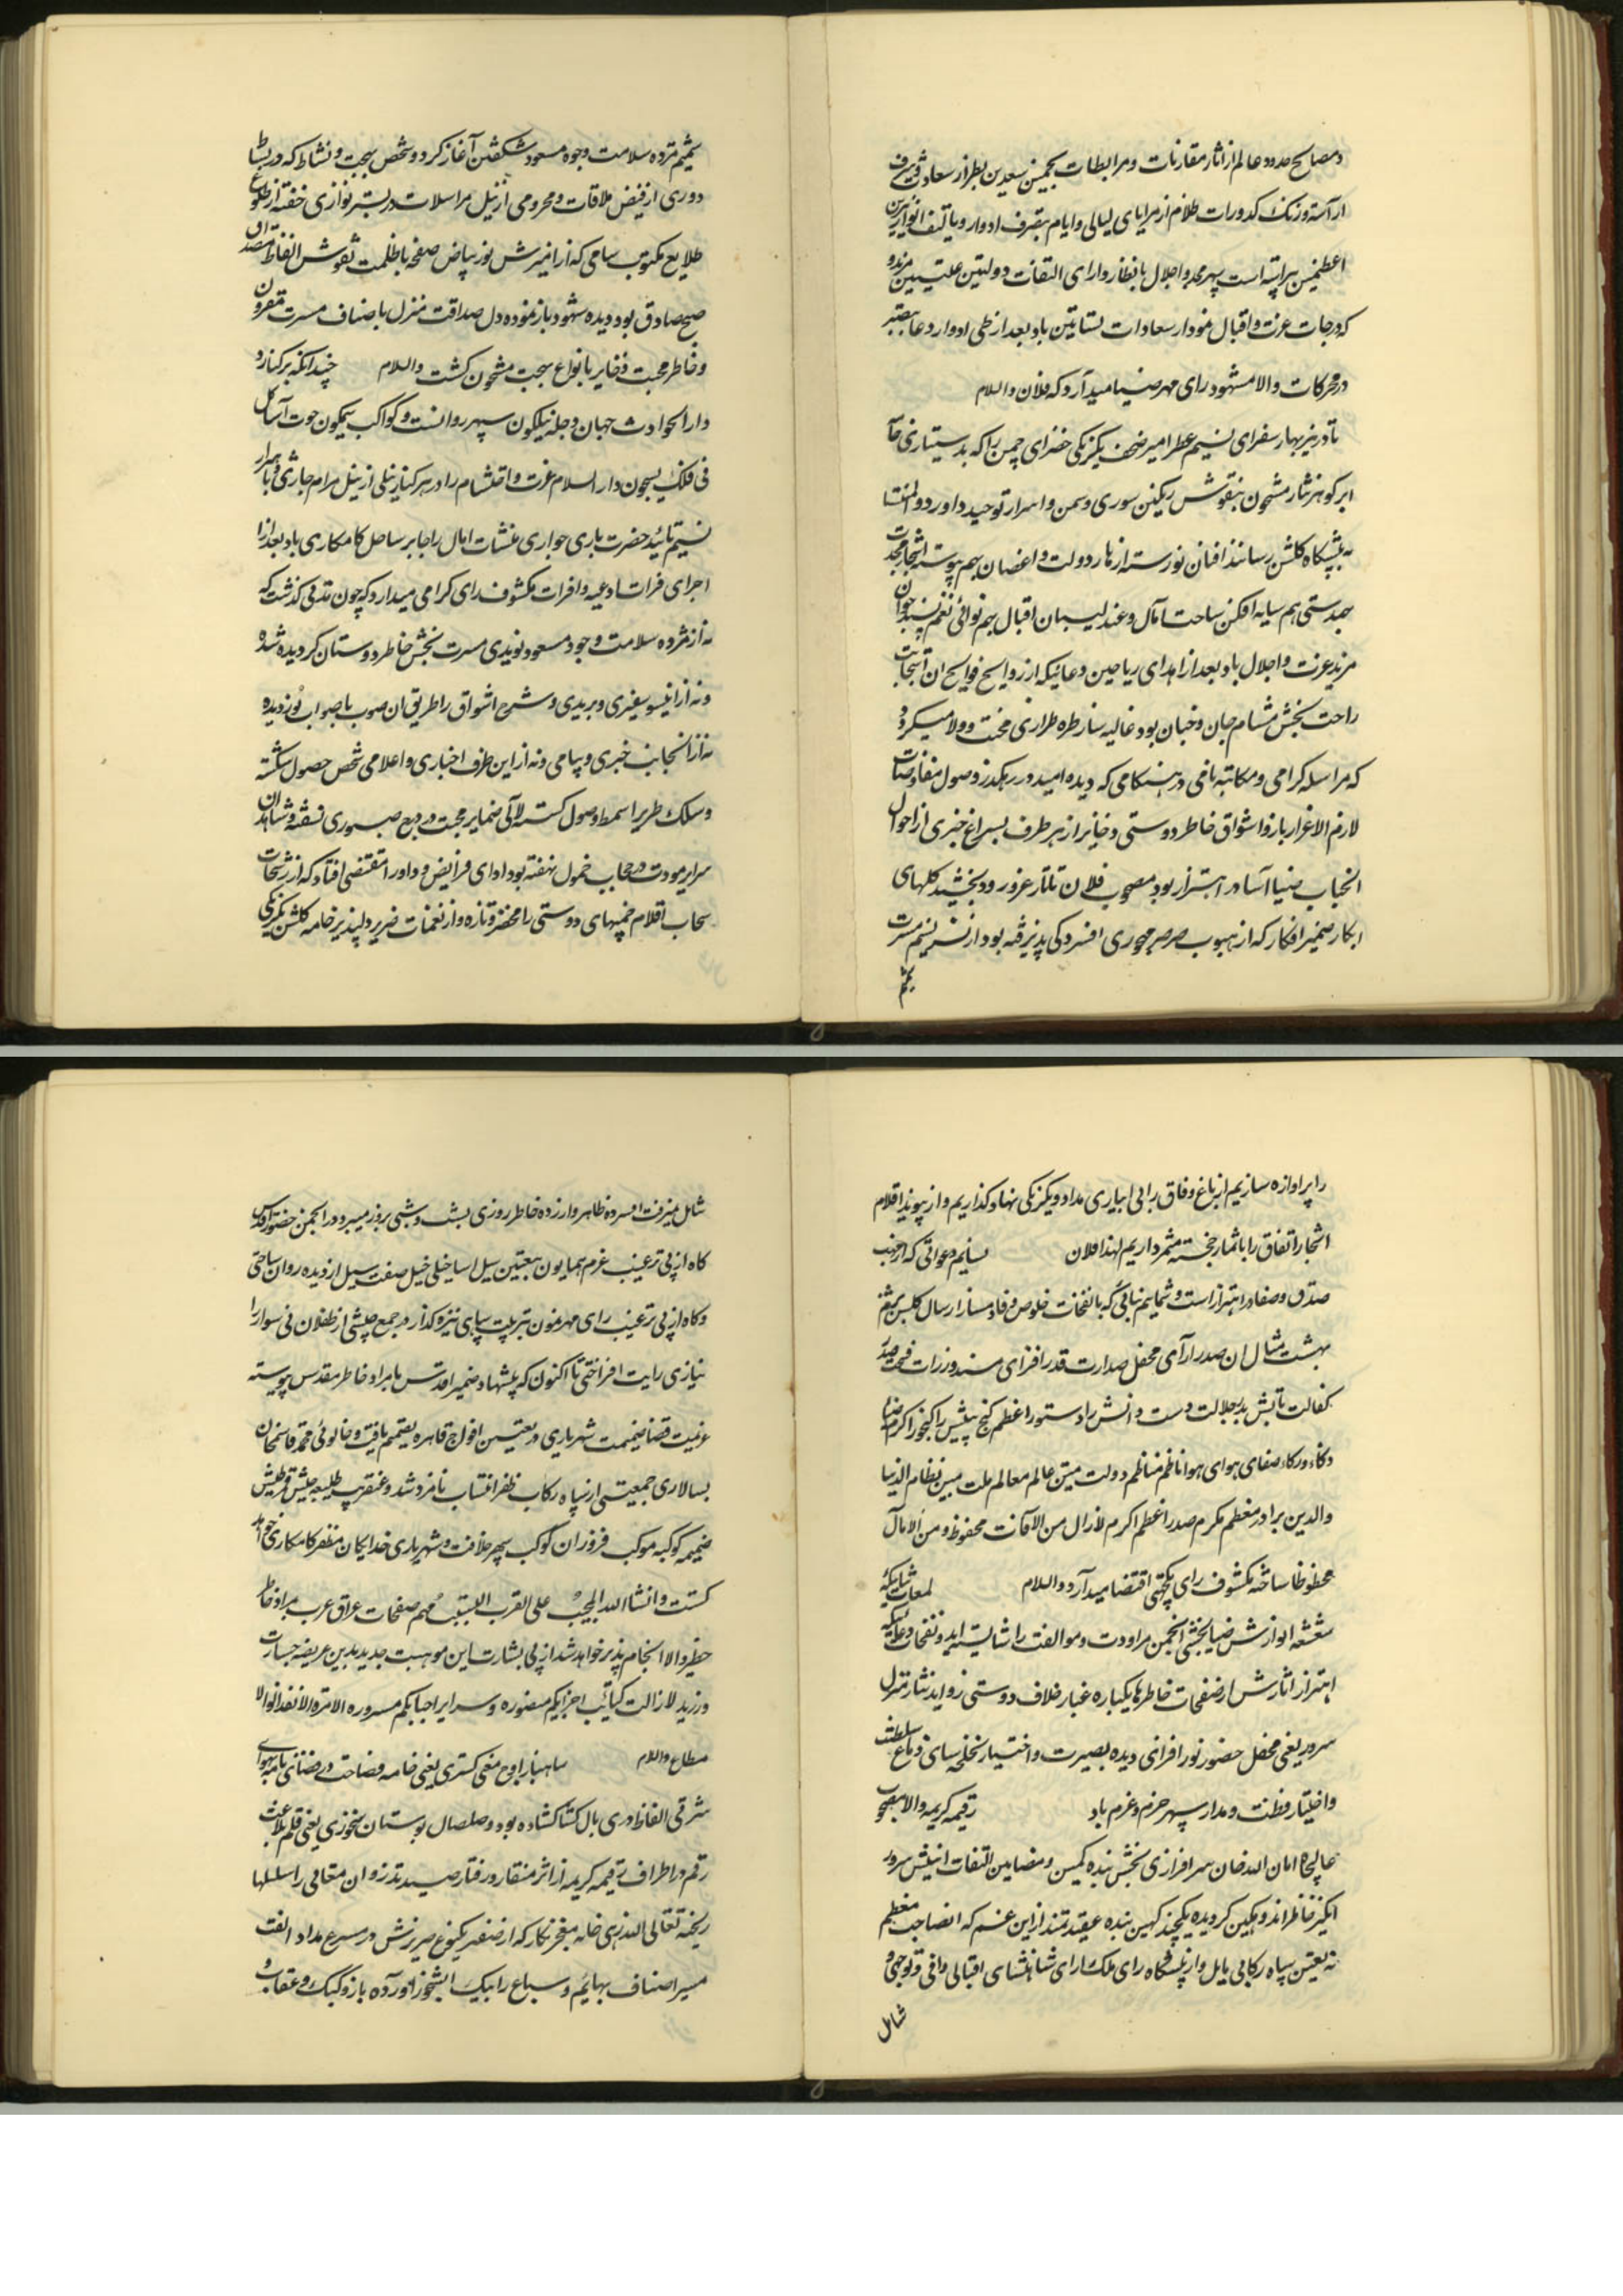 و مصالح حدود عالم از اثار مقارنات و مرابطات بجمین سعدین بطراز سعادت
از آسته وزنک کدورات ظلام از مرایای لیالی و ایام بتصرف ادوار و
اعظمین پیراسته است سپهر مجد و اجلال بانظار وارای التفات دولتین علیتین
که درجات عزت و اقبال نمودار سعادات نشاتین باد بعد از طی ادوار دعا
در محرکات والا مشهود رای مهر ضیا میدارد که فلان والسلام
تا در نیز بهار سفرای نسیم عطر امیز صحف یکرنکی خضرای چمن را که بدستیاری
ابر کوهر نثار مشحون بنقوش رنکین سوری و سمن و اسرار توحید داور
به پیشکاه کلشن رسانند افنان نورسته ازهار دولت و اغصان بهم پیوسته اشجار
همدستی هم سایه افکن ساحت امال و عندلیبان اقبال بهم نوائی نغم
مزید عزت و اجلال باد بعد از اهدای ریاحین دعائیکه از روایح فوایح ان
راحت بخش مشام جان و جنان بود غالیه سا طره طرازی محبت و ولا میکردد
که مراسله کرامی و مکاتبه نامی در هنکامی که دیده امید در رهکذر وصول مفاوضات
لازم الاعزاز باز و اشواق خاطر دوستی ذخایر از هر طرف بسراغ خبری از احوال
انجناب صبا آسا در اهتزاز بود مصحوب فلان عز ورود بخشید کلهای
ابکار ضمیر افکار که از هبوب صرصر مهجوری افسردکی پذیرفته بود از نسیم مسرت
شمیم
شمیم مژده سلامت وجود مسعود شکفتن آغاز کرد و شخص بهجت و نشاط که در
دوری از فیض ملاقات و محرومی از نیل مراسلات در بستر خفته از طلوع
طلایع مکتوب سامی که از امیزش نور بیاض صفحه با ظلمت نقوش الفاظ مصداق
صبح صادق بود دیده شهود باز نموده دل صداقت منزل باصناف مسرت مقرون
و خاطر محبت ذخایر بانواع بهجت مشحون کشت والسلام چندانکه بر کنار
دارالحوادث جهان دجله نیلکون سپهر روانست و کواکب سیمکون حوت آسا کل
فی فلک یسبحون دارالسلام عزت و احتشام را در هر کنار نیلی از نیل مرام جاری
نسیم تائید حضرت باری جواری منشات امال را جابر ساحل کامکاری باد بعد از
اجرای فرات ادعیه وافرات مکشوف رای کرامی میدارد که چون مدتی کذشت که
نه از مژده سلامت وجود مسعود نویدی مسرت بخش خاطر دوستان کردیده شد
و نه از انیسو سفیری و بریدی و شرح اشواق را طریق ان صوب باصواب نوردیده
نه از انجانب خبری و پیامی و نه از این طرف اخباری و اعلامی شخص حصول
و سلک طریر سمط وصول کسسته لآلی ضمایر محبت صبوری نسفته و شاهدان
سرایر مودت در حجاب خمول نهفته بود ادای فرایض وداد را مقتضی افتاد که از رشحات
سحاب اقلام چمنهای دوستی را مخضر و تازه و از نغمات صریر دلپذیر خامه کلشن یکرنکی
را پر اوازه سازیم از باغ وفاق را بی ابیاری مداد یکرنکی نهاد نکذاریم و از پیوند اقلام
اشجار اتفاق را باثمار خجسته مثمر داریم لهذا فلان نسایم دعواتی که از مهب
صدق و صفا در اهتزاز است و شمایم ثنائی که با نفحات خلوص وفا دمساز ارسال کلشن بزم
بهشت مثال ان صدر آرای محفل صدارت قدر افزای مسند وزرات
کفالت تابش بدر جلالت دست دانش را دستور اعظم کنج بینش را کنجور اکرم
ذکاء و رکاء صفای هوای هوا ناظم مناظم دولت متین عالم معالم ملت مبین نظام الدنیا
والدین برادر معظم مکرم صدر اعظم اکرم لازال من الآفات محفوظ و من الامال
محظوظا ساخته مکشوف رای یکجهتی اقتضا میدارد والسلام لمعات ثنائیکه
شعشعه انوارش ضیا بخش انجمن مراودت و موالفت را شایسته اید و نفحات دعائیکه
اهتزاز اثارش از صفحات خاطرها یکباره غبار خلاف دوستی زداید نثار منزل
سرور یعنی محفل حضور نور افزای دیده بصیرت و اختبار نخلخه سای دماغ سلطنت
و اختیار فطنت و مدار سپهر حزم و عزم باد رقیمه کریمه والا مصحوب
عالیجاه امان الله خان سرافرازی بخش بنده کمین و مضامین التفات انیش سرور
انکیز خاطر اندوهکین کردیده یکچند کهین بنده عقیدتمند از این غم که انصاحب معظم
به تعیین سپاه رکابی مایل و از پیشکاه رای ملک ارای شاهنشاهی اقبالی وافی و توجهی
شامل
شامل میرفت افسرده ظاهر و ارزده خاطر روزی بشب و شبی بروز میبرد و در انجمن حضور اقدس
کاه از پی ترغیب عزم همایون بتعیین سیل اسا خیلی خیل صفت سیل از دیده روان ساختی
و کاه از پی ترغیب رای مهر نمون بتربیت سپاهی نیزه کذار در جمع جیشی از طفلان نی سوار
نیازی رایت افراختی تا اکنون که پیشنهاد ضمیر اقدس با مراد خاطر مقدس پیوسته
عزیمت قضا ضمیمت شهریاری در تعیین افواج قاهره تصمیم یافت و خالوئی محمد قاسمخان
بسالاری جمعیتی از سپاه رکاب ظفر انتساب نامزد شد و عنقریب طلیعه جیش
ضمیمه کوکبه موکب فروزان کوکب سپهر خلافت و شهریاری خدایکان مظفر کامکاری خواهد
کشت و انشا الله المجیب علی القرب مهم صفحات عراق عرب بر مراد خاطر
خطیر والا انجام پذیر خواهد شد از پی بشارت این موهبت جدید بدین عریضه جسارت
ورزید لازالت کتائب اجزابکم منصوره و سرایر احبابکم مسروره الامر الانفذ الوالا
مطاع والسلام شاهباز اوج معنی کستری یعنی خامه فصاحت در فضای نامه بهوای
شرقی الفاظ دری بال کشا کشاده بود و صلصال بوستان سخنوری یعنی قلم بلاغت
رقم در اطراف رقیمه کریمه از اثر منقار و رفتار صید تذروان معانی را سلسلها
ریخته تعالی الله زهی خامه معجز نکار که از صفیر یکنوع صریرش در مسرع مداد الفت
مسیر اصناف بهائم و سباع را بیک ابشخور آورده باز و کبک و عقاب و